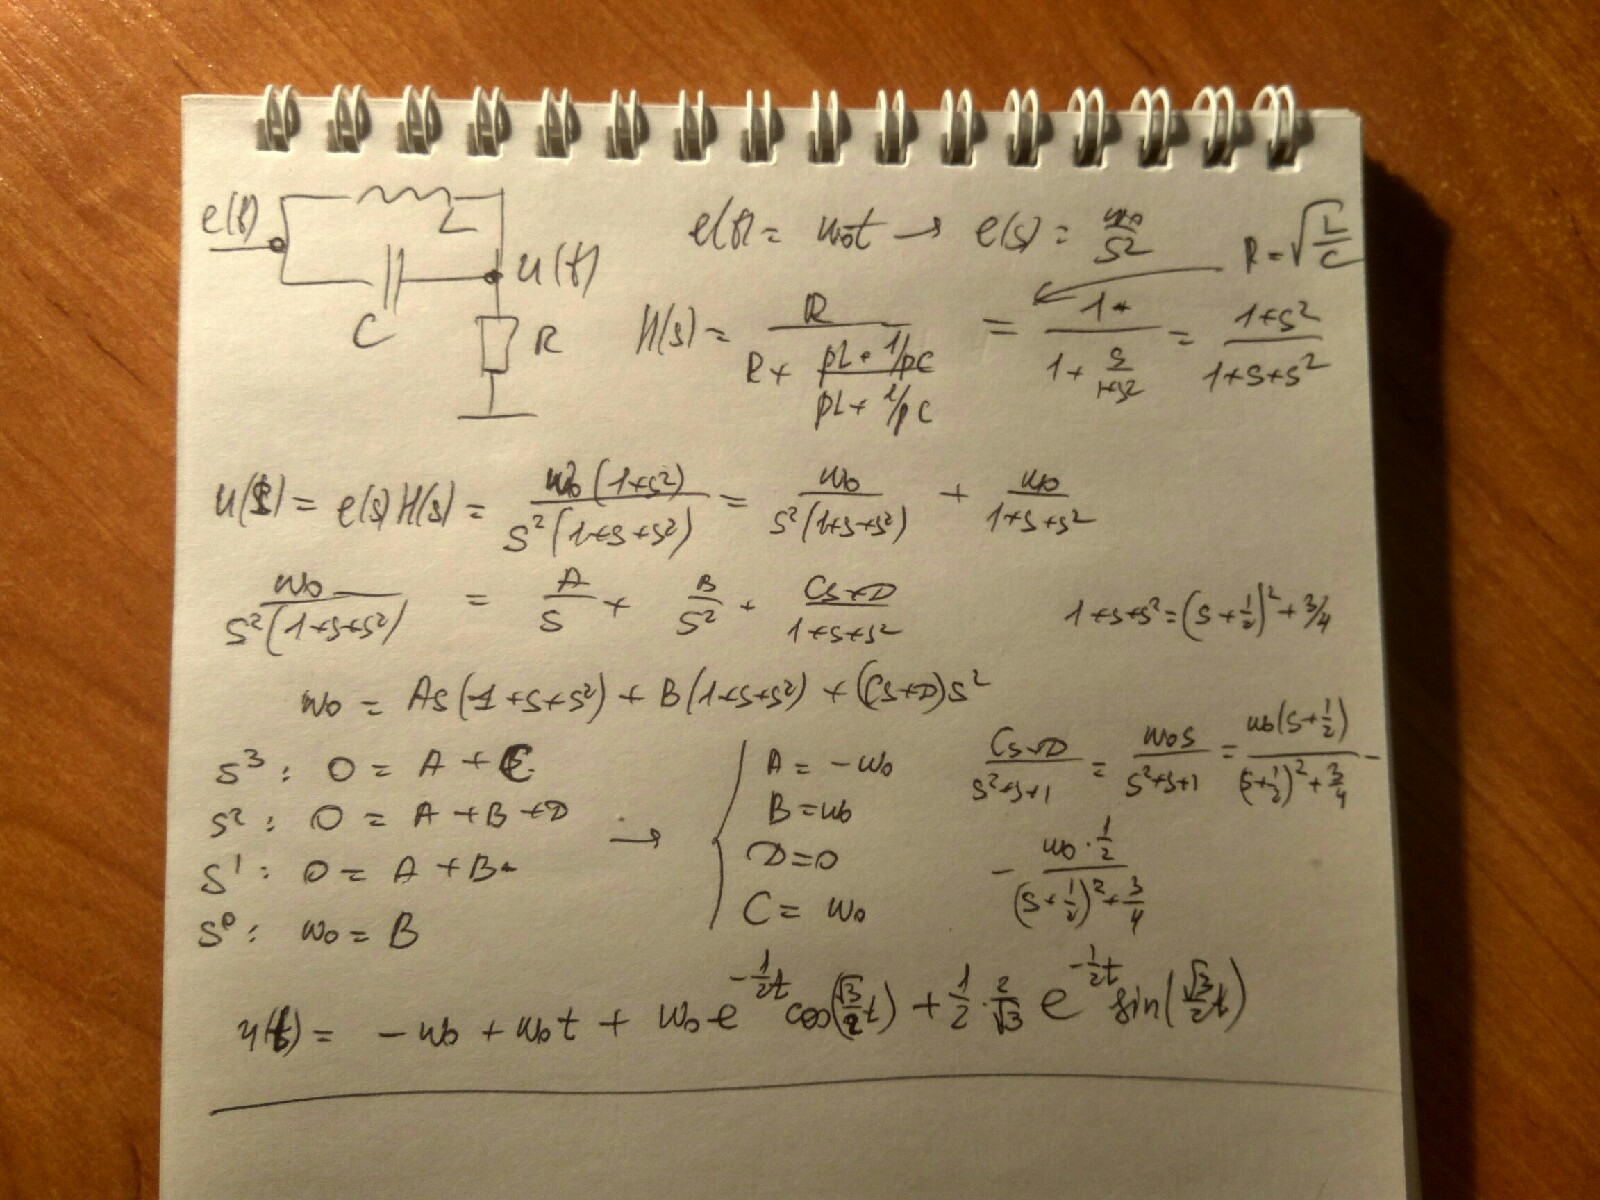 e(t) L C u(t) R
e(t) = w₀t → e(s) = w₀/s²
R = √(L/C)
H(s) = R/(R + (pL · 1/pC)/(pL + 1/pC)) = 1/(1 + s/(1+s²)) = (1+s²)/(1+s+s²)
u(s) = e(s) H(s) = w₀(1+s²)/(s²(1+s+s²)) = w₀/(s²(1+s+s²)) + w₀/(1+s+s²)
w₀/(s²(1+s+s²)) = A/s + B/s² + (Cs+D)/(1+s+s²)
1+s+s² = (s+1/2)² + 3/4
w₀ = As(1+s+s²) + B(1+s+s²) + (Cs+D)s²
s³: 0 = A + C
s²: 0 = A + B + D
s¹: 0 = A + B
s⁰: w₀ = B
→
A = -w₀
B = w₀
D = 0
C = w₀
(Cs+D)/(s²+s+1) = w₀s/(s²+s+1) = w₀(s+1/2)/((s+1/2)²+3/4) -
- w₀·1/2/((s+1/2)²+3/4)
u(t) = -w₀ + w₀t + w₀e^(-1/2t) cos(√3/2 t) + 1/2 · 2/√3 e^(-1/2t) sin(√3/2 t)